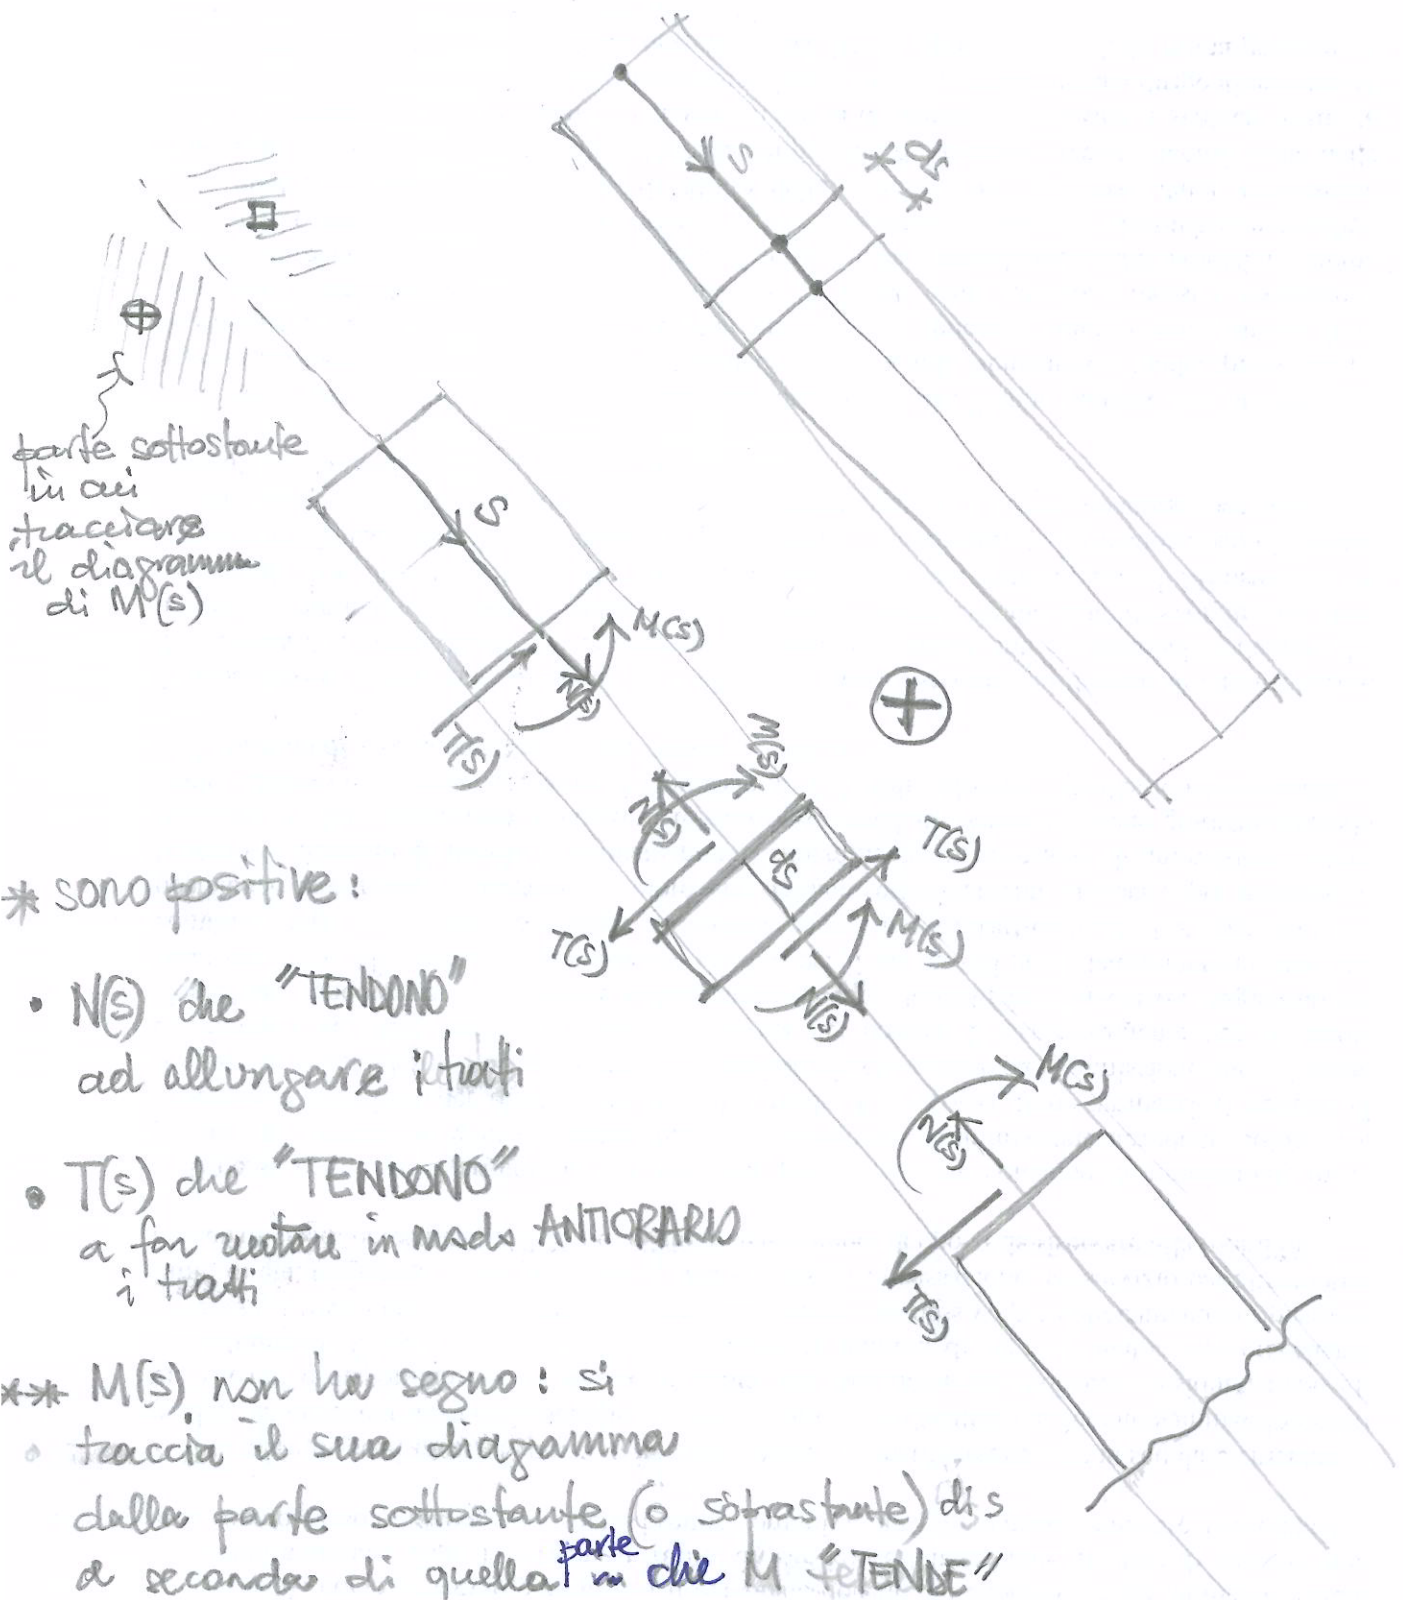 S
ds
parte sottostante
in cui
tracciare
il diagramma
di M(s)
S
M(s)
N(s)
T(s)
M(s)
N(s)
T(s)
ds
T(s)
M(s)
N(s)
M(s)
N(s)
T(s)
* sono positive:
• N(s) che "TENDONO"
ad allungare i tratti
• T(s) che "TENDONO"
a far ruotare in modo ANTIORARIO
i tratti
** M(s) non ha segno: si
traccia il suo diagramma
dalla parte sottostante (o soprastante) di s
a seconda di quella parte che M "TENDE"